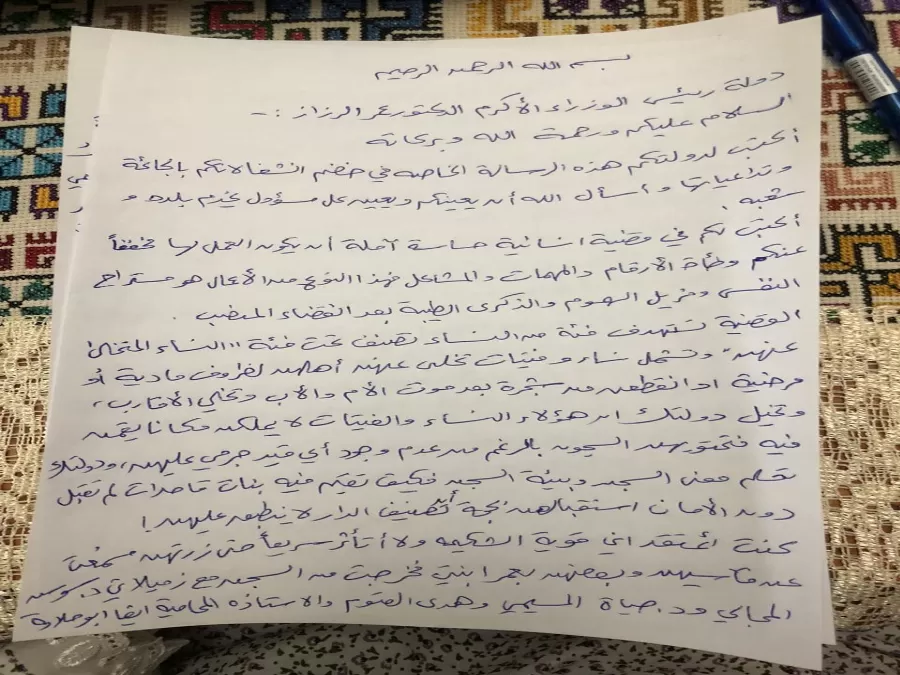 بسم الله الرحمن الرحيم
دولة رئيس الوزراء الأكرم الدكتور عمر الرزاز :-
السلام عليكم ورحمة الله وبركاته
أكتب لدولتكم هذه الرسالة الخاصة في خضم انشغالاتكم بالجائحة
وتداعياتها وأسأل الله أن يعينكم ويعين كل مسؤول يخدم بلده و
شعبه.
أكتب لكم في قضية انسانية حساسة آملة أن يكون العمل لها مخففاً
عنكم وطأة الأرقام والمهمات والمشاكل فهذا النوع من الأعمال هو مستراح
النفس ومزيل الهموم والذكرى الطيبة بعد انقضاء المنصب .
القضية تستهدف فئة من النساء تصنف تحت فئة "النساء المتخلى
عنهن" وتشمل نساء وفتيات تخلى عنهن أهلهن لظروف مادية أو
مرضية او انقطعن من شجرة بعد موت الأم والأب وتخلي الأقارب،
وتخيل دولتك ان هؤلاء النساء والفتيات لا يملكن مكانا يقمن
فيه فتحتويهن السجون بالرغم من عدم وجود أي قيد جرمي عليهن، ودولتك
تعلم معنى السجن وبيئة السجن فكيف تقيم فيه بنات قاصرات لم تقبل
دور الأمان استقبالهن بحجة أن تصنيف الدار لا ينطبق عليهن!
كنت أعتقد اني قوية الشكيمة ولا أتأثر سريعاً حتى زرتهن وسمعت
عن مآسيهن وبعضهن بعمر ابنتي فخرجت من السجن مع زميلاتي د.سوسن
المجالي ود.حياة المسيمي وهدى العتوم والاستاذه المحامية ايفا ابو حلاوة